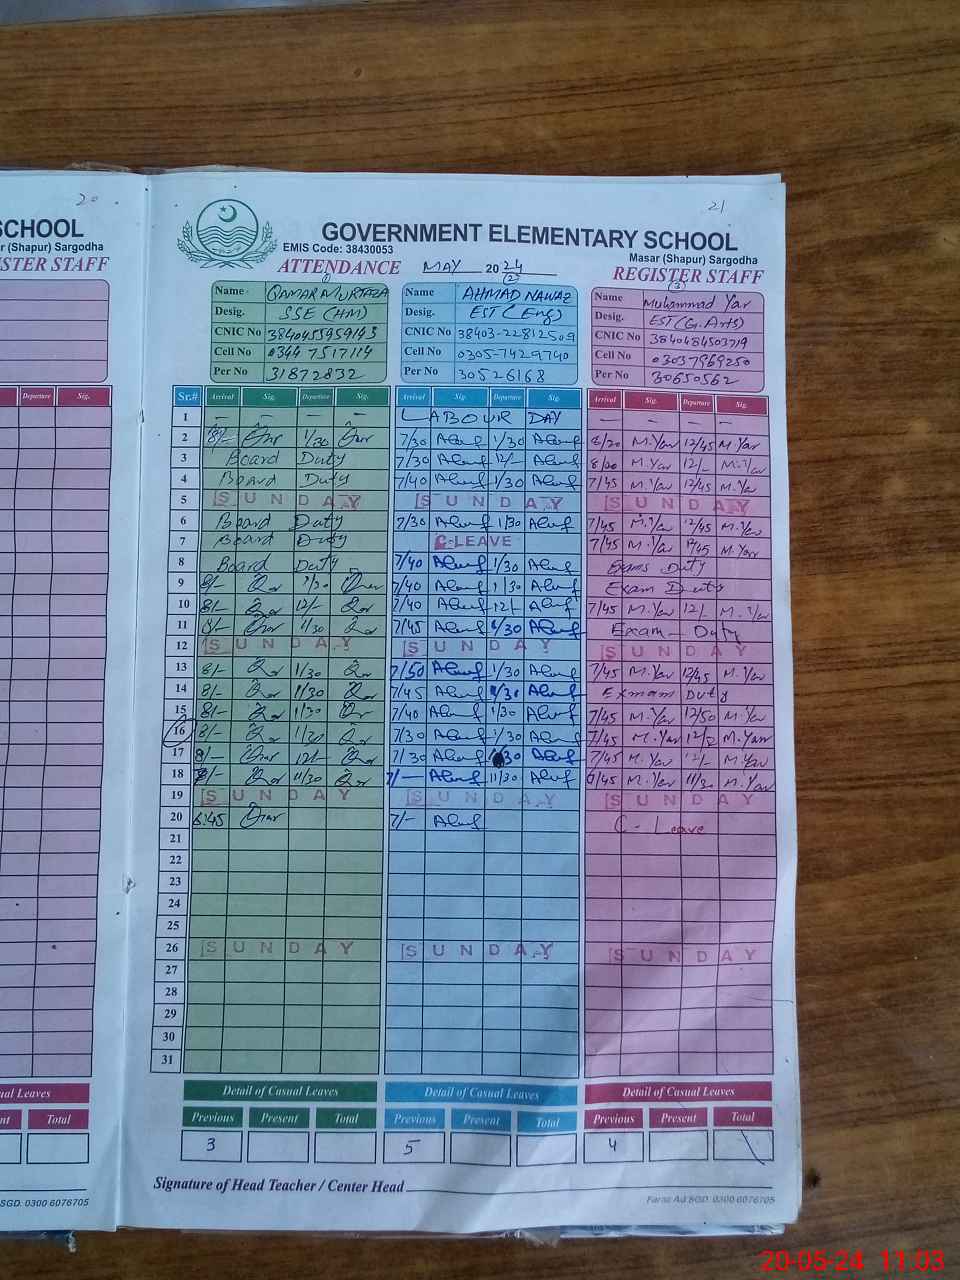 20
21
SCHOOL
r (Shapur) Sargodha
ISTER STAFF
GOVERNMENT ELEMENTARY SCHOOL
EMIS Code: 38430053
Masar (Shapur) Sargodha
ATTENDANCE MAY 2024 REGISTER STAFF
(1) (2) (3)
Name QAMAR MURTAZA Name AHMAD NAWAZ Name Muhammad Yar
Desig. SSE (HM) Desig. EST (Eng) Desig. EST (G.Arts)
CNIC No 3840455959143 CNIC No 38403-22812509 CNIC No 3840484503719
Cell No 0344 7517114 Cell No 0305-7429740 Cell No 03037969250
Per No 31872832 Per No 30526168 Per No 30650562
Departure Sig. Sr.# Arrival Sig. Departure Sig. Arrival Sig. Departure Sig. Arrival Sig. Departure Sig.
1 — — — — LABOUR DAY — — — —
2 8/- 1/30 7/30 1/30 8/20 M.Yar 12/45 M.Yar
3 Board Duty 7/30 12/- 8/20 M.Yar 12/- M.Yar
4 Board Duty 7/40 1/30 7/45 M.Yar 12/45 M.Yar
5 SUNDAY SUNDAY SUNDAY
6 Board Duty 7/30 1/30 7/45 M.Yar 12/45 M.Yar
7 Board Duty C-LEAVE 7/45 M.Yar 12/45 M.Yar
8 Board Duty 7/40 1/30 Exams Duty
9 8/- 1/30 7/40 1/30 Exam Duty
10 8/- 12/- 7/40 12/- 7/45 M.Yar 12/- M.Yar
11 8/- 1/30 7/45 1/30 Exam - Duty
12 SUNDAY SUNDAY SUNDAY
13 8/- 1/30 7/50 1/30 7/45 M.Yar 12/45 M.Yar
14 8/- 1/30 7/45 1/30 Exmam Duty
15 8/- 1/30 7/40 1/30 7/45 M.Yar 12/50 M.Yar
16 8/- 1/30 7/30 1/30 7/45 M.Yar M.Yar
17 8/- 12/- 7/30 7/45 M.Yar 12/- M.Yar
18 11/30 7/— 11/30 M.Yar 11/30 M.Yar
19 SUNDAY SUNDAY SUNDAY
20 6:45 7/- C - Leave
21
22
23
24
25
26 SUNDAY SUNDAY SUNDAY
27
28
29
30
31
ual Leaves Detail of Casual Leaves Detail of Casual Leaves Detail of Casual Leaves
nt Total Previous Present Total Previous Present Total Previous Present Total
3 5 4
Signature of Head Teacher / Center Head
SGD. 0300 6076705
Faraz Ad SGD. 0300 6076705
20-05-24 11:03